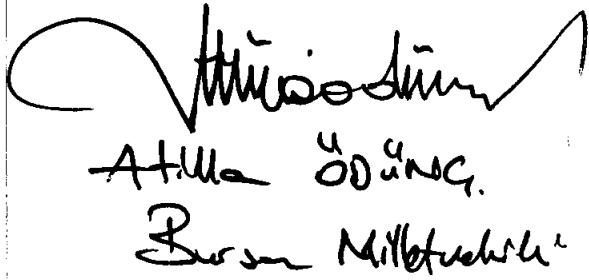 Atilla ÖDÜNÇ.
Bursa Milletvekili